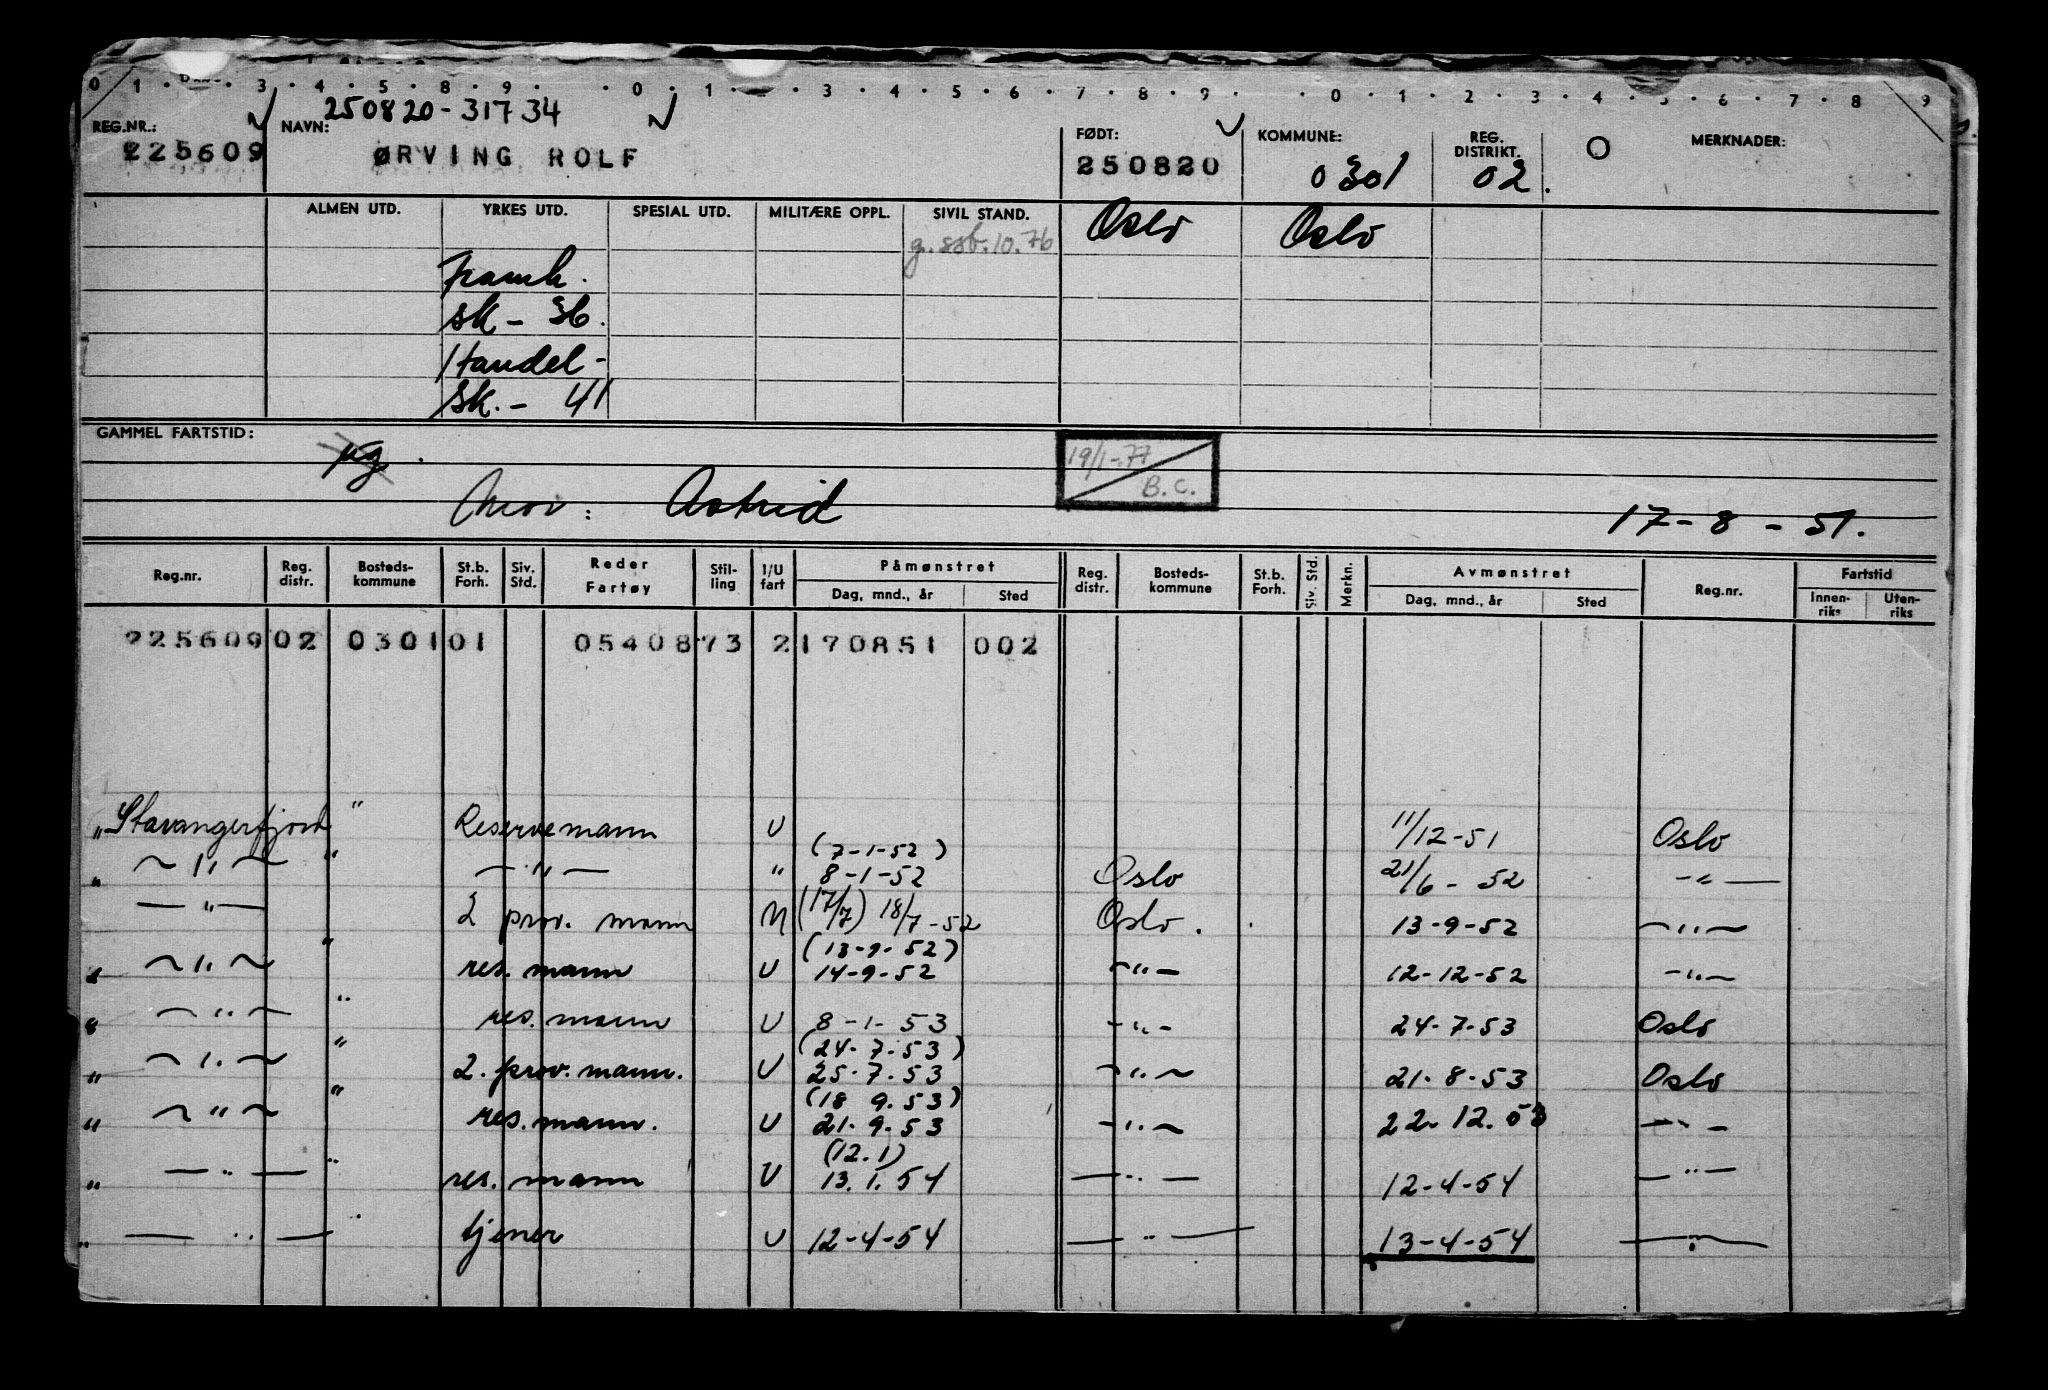 0 1 · · 3 · 4 · 5 · 8 · 9 · · 0 · 1 · · 3 · 4 · 5 · 6 · 7 · 8 · 9 · · 0 · 1 · 2 · 3 · 4 · 5 · 6 · 7 · 8 9
250820-31734
REG.NR.: NAVN: FØDT: KOMMUNE: REG. DISTRIKT. O MERKNADER:
225609 ØRVING ROLF 250820 0301 02.
ALMEN UTD. YRKES UTD. SPESIAL UTD. MILITÆRE OPPL. SIVIL STAND. Oslo Oslo
g. ssb. 10.76
framh.
sk - 36.
Handel-
sk. - 41
GAMMEL FARTSTID:
ug. 19/1-77
B.C.
Mor: Astrid 17-8-51.
Reg.nr. Reg. distr. Bosteds-kommune St.b. Forh. Siv. Std. Reder Fartøy Stil-ling I/U fart Påmønstret Dag, mnd., år Sted Reg. distr. Bosteds-kommune St.b. Forh. Siv. Std. Merkn. Avmønstret Dag, mnd., år Sted Reg.nr. Fartstid Innen-riks Uten-riks
225609 02 0301 01 0540873 2 170851 002
" Stavangerfjord " Reservemann U 11/12-51 Oslo
(7-1-52)
" — " — " — " — " 8-1-52 Oslo 21/6-52 — " —
— " — 2 prov. mann U (17/7) 18/7-52 Oslo. 13-9-52 — " —
(13-9-52)
" — " — " res. mann U 14-9-52 — " — 12-12-52 — " —
" — " — " res. mann U 8-1-53 — " — 24-7-53 Oslo
(24-7-53)
" — " — " 2. prov. mann. U 25-7-53 — " — 21-8-53 Oslo
(18 9.53)
" — " — " res. mann. U 21-9-53 — " — 22-12.53 — " —
(12.1)
" — " — " res. mann U 13.1.54 — " — 12-4-54 — " —
" — " — " tjener U 12-4-54 — " — 13-4-54 — " —